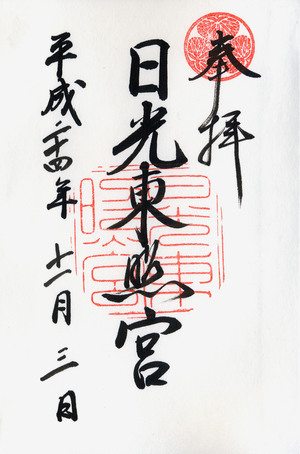 奉拝
日光東照宮
平成二十四年十一月三日